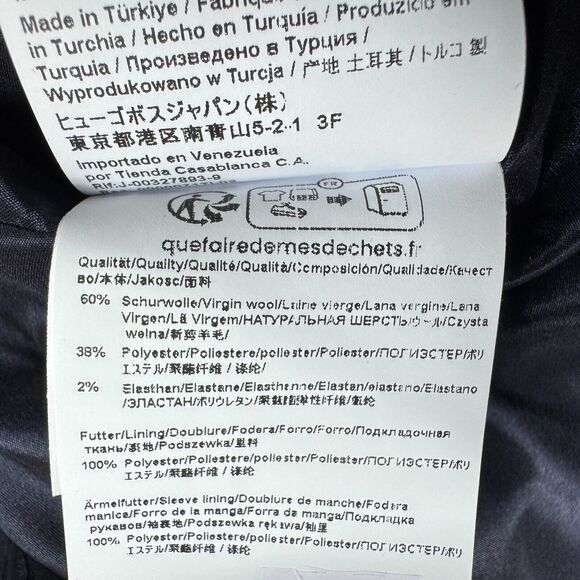 Made in Türkiye / Fabriqu
in Turchia / Hecho en Turquía / Produzido em
Turquia / Произведено в Турция /
Wyprodukowano w Turcja / 产地 土耳其 / トルコ 製
ヒューゴボスジャパン(株)
東京都港区南青山5-2-1 3F
Importado en Venezuela
por Tienda Casablanca C.A.
Rif:J-00327893-9
FR
quefairedemesdechets.fr
Qualität/Quality/Qualité/Qualità/Composición/Qualidade/Качест
во/本体/Jakosc/面料
60% Schurwolle/Virgin wool/Laine vierge/Lana vergine/Lana
Virgen/Lã Virgem/НАТУРАЛЬНАЯ ШЕРСТЬ/ウール/Czysta
welna/新剪羊毛/
38% Polyester/Poliestere/poliester/Poliester/ПОЛИЭСТЕР/ポリ
エステル/聚酯纤维 / 涤纶/
2% Elasthan/Elastane/Elasthanne/Elastan/elastano/Elastano
/ЭЛАСТАН/ポリウレタン/聚氨酯弹性纤维/氨纶
Futter/Lining/Doublure/Fodera/Forro/Forro/Подкладочная
ткань/裏地/Podszewka/里料
100% Polyester/Poliestere/poliester/Poliester/ПОЛИЭСТЕР/ポリ
エステル/聚酯纤维 / 涤纶/
Ärmelfutter/Sleeve lining/Doublure de manche/Fodera
manica/Forro de la manga/Forro da manga/Подкладка
рукавов/袖裏地/Podszewka rękawa/袖里
100% Polyester/Poliestere/poliester/Poliester/ПОЛИЭСТЕР/ポリ
エステル/聚酯纤维 / 涤纶/